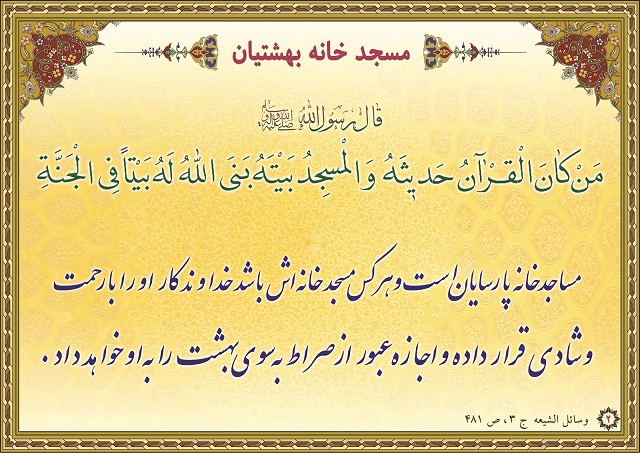 مسجد خانه بهشتیان
قال رسول الله صلی الله علیه و آله
مَنْ كانَ الْقُرْآنُ حَديثَهُ وَ الْمَسْجِدُ بَيْتَهُ بَنَى اللهُ لَهُ بَيْتاً فِى الْجَنَّةِ
مساجد خانه پارسایان است و هر کس مسجد خانه‌اش باشد خداوند کار او را با رحمت
و شادی قرار داده و اجازه عبور از صراط به سوی بهشت را به او خواهد داد.
۲ وسائل الشیعه ج ۳، ص ۴۸۱